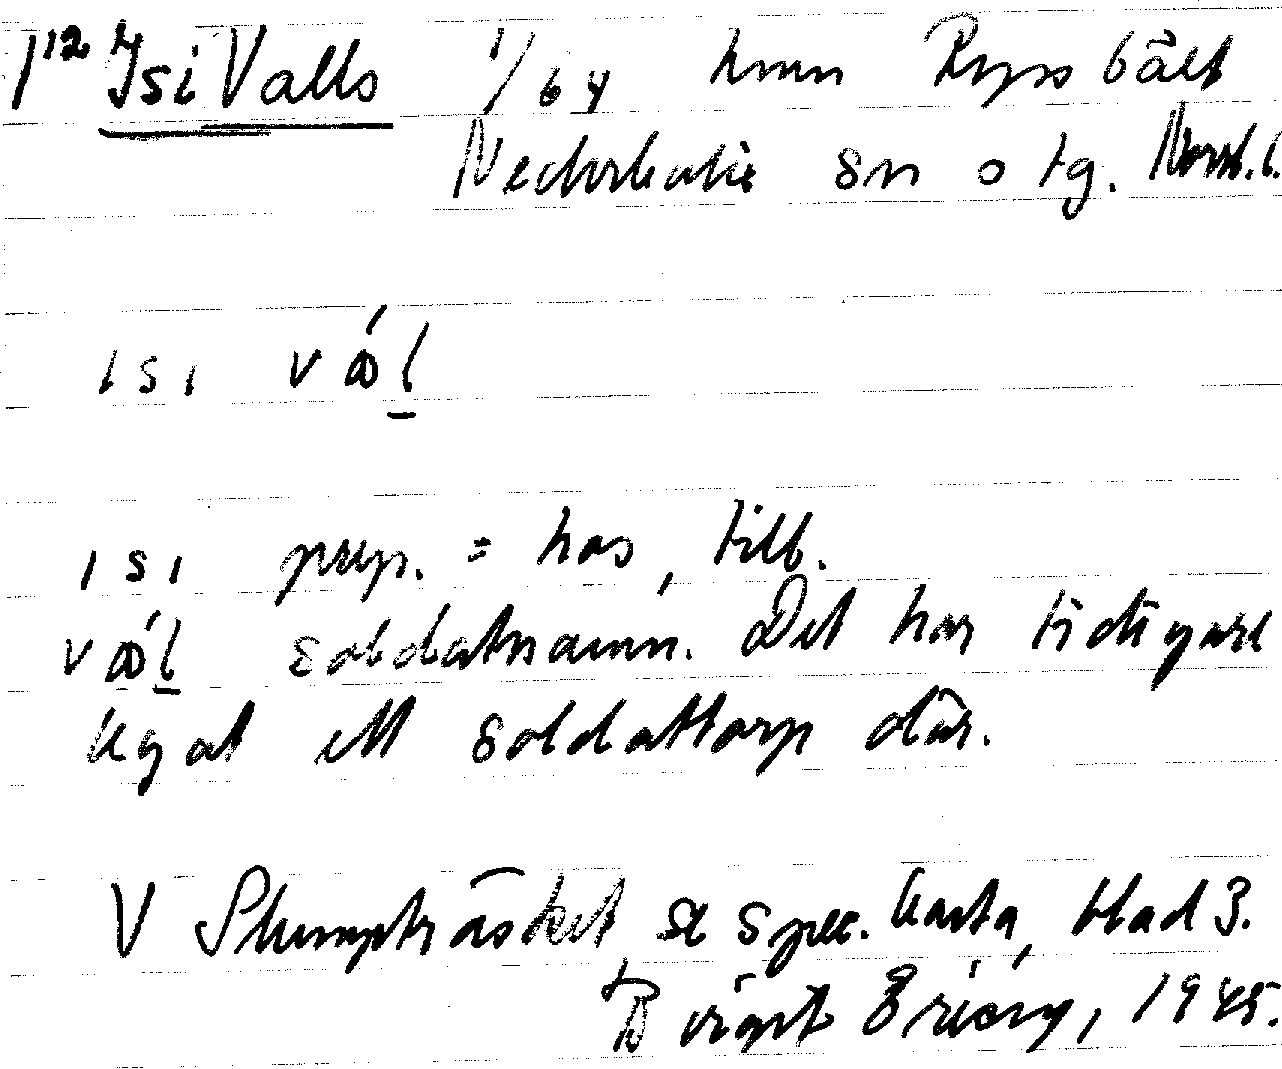 1¹² Isi Valls 1/64 hmn Ryssbält
Nederkalix sn o tg. Norrb. l.
ısı vål
ısı prep. = hos, till.
vål soldatnamn. Det har tidigare
legat ett soldattorp där.
V Stumpträsket se spec. karta, blad 3.
Birgit Ericsy, 1945.